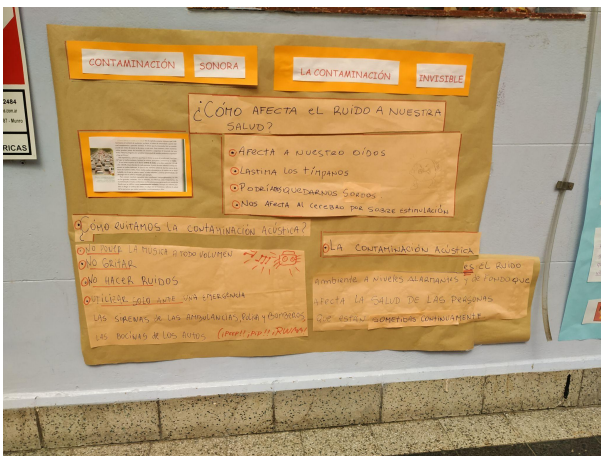 2484
RICAS
CONTAMINACIÓN SONORA
LA CONTAMINACIÓN INVISIBLE
¿CÓMO AFECTA EL RUIDO A NUESTRA
SALUD?
AFECTA A NUESTRO OÍDOS
LASTIMA LOS TÍMPANOS
PODRÍAMOS QUEDARNOS SORDOS
NOS AFECTA AL CEREBRO POR SOBRE ESTIMULACIÓN
¿CÓMO EVITAMOS LA CONTAMINACIÓN ACÚSTICA?
NO PONER LA MUSICA A TODO VOLUMEN
NO GRITAR
NO HACER RUIDOS
UTILIZAR SOLO ANTE UNA EMERGENCIA
LAS SIRENAS, DE LAS AMBULANCIAS, POLICIA Y BOMBEROS
LAS BOCINAS DE LOS AUTOS
LA CONTAMINACIÓN ACÚSTICA
ES EL RUIDO
AMBIENTE A NIVELES ALARMANTES Y DE FONDO QUE
AFECTA LA SALUD DE LAS PERSONAS
QUE ESTÁN SOMETIDAS CONTINUAMENTE